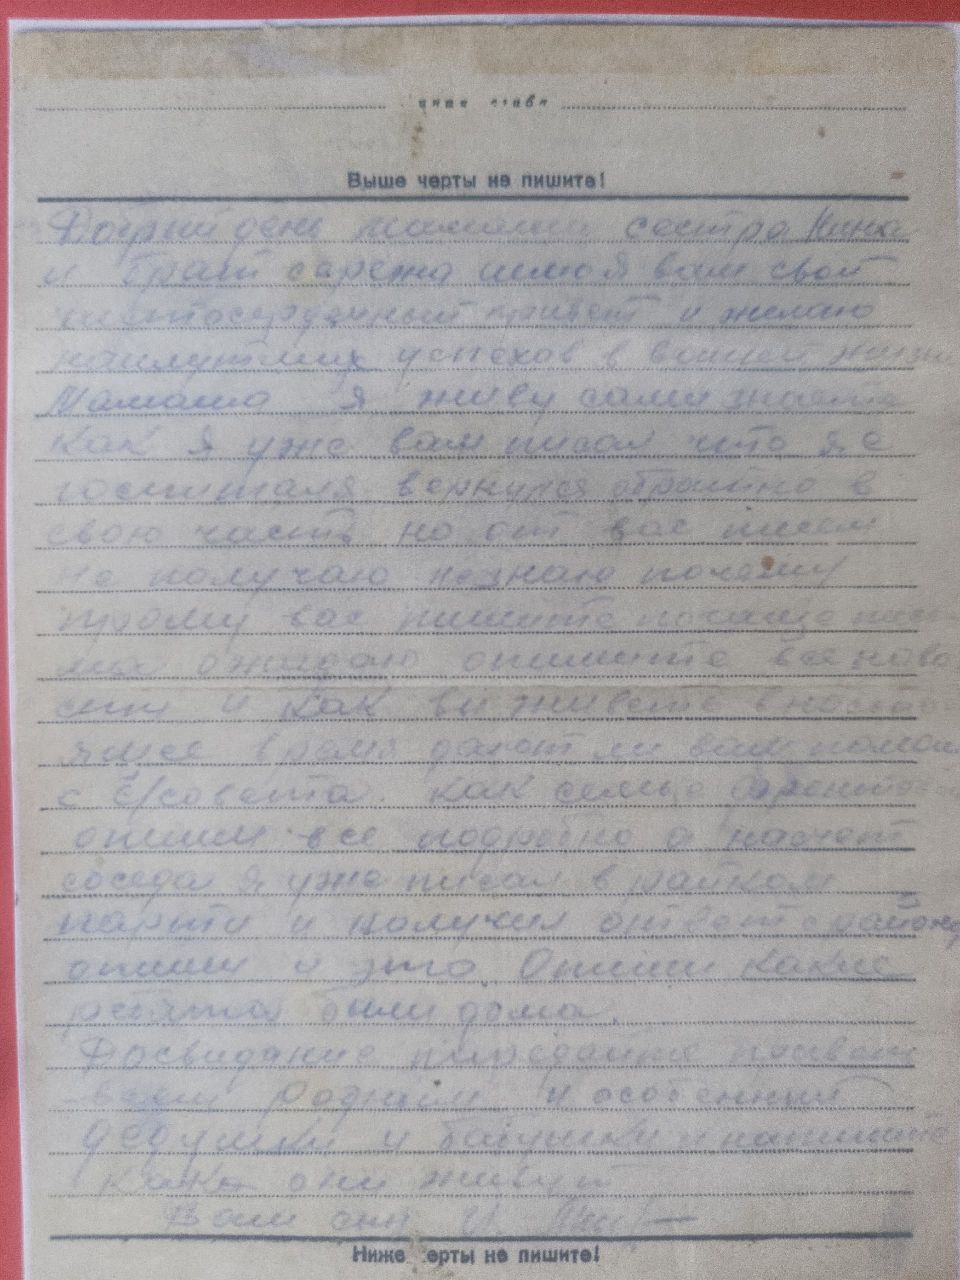 Выше черты не пишите!
Добрый день мамаша сестра Нина
и брат сарежа шлю я вам свой
чистосердечный привет и желаю
наилутших успехов в вашей жизни
Мамаша я живу сами знаете
как я уже вам писал что я с
госпиталя вернулся обратно в
свою часть но от вас писем
не получаю незнаю почему
прошу вас пишите почаще пис
ма ожидаю опишите все ново
сти и как вы живете внасто
ящее время дают ли вам помощ
с с/совета. как семье
опиши все подробно а насчет
соседа я уже писал в райком
парти и получил ответ с
опиши и это. Опиши какие
ребята были дома.
Досвидание передайте привет
всем родным и особенный
дедушки и бабушки и напишите
как они живут
Ваш сын И.
Ниже черты не пишите!